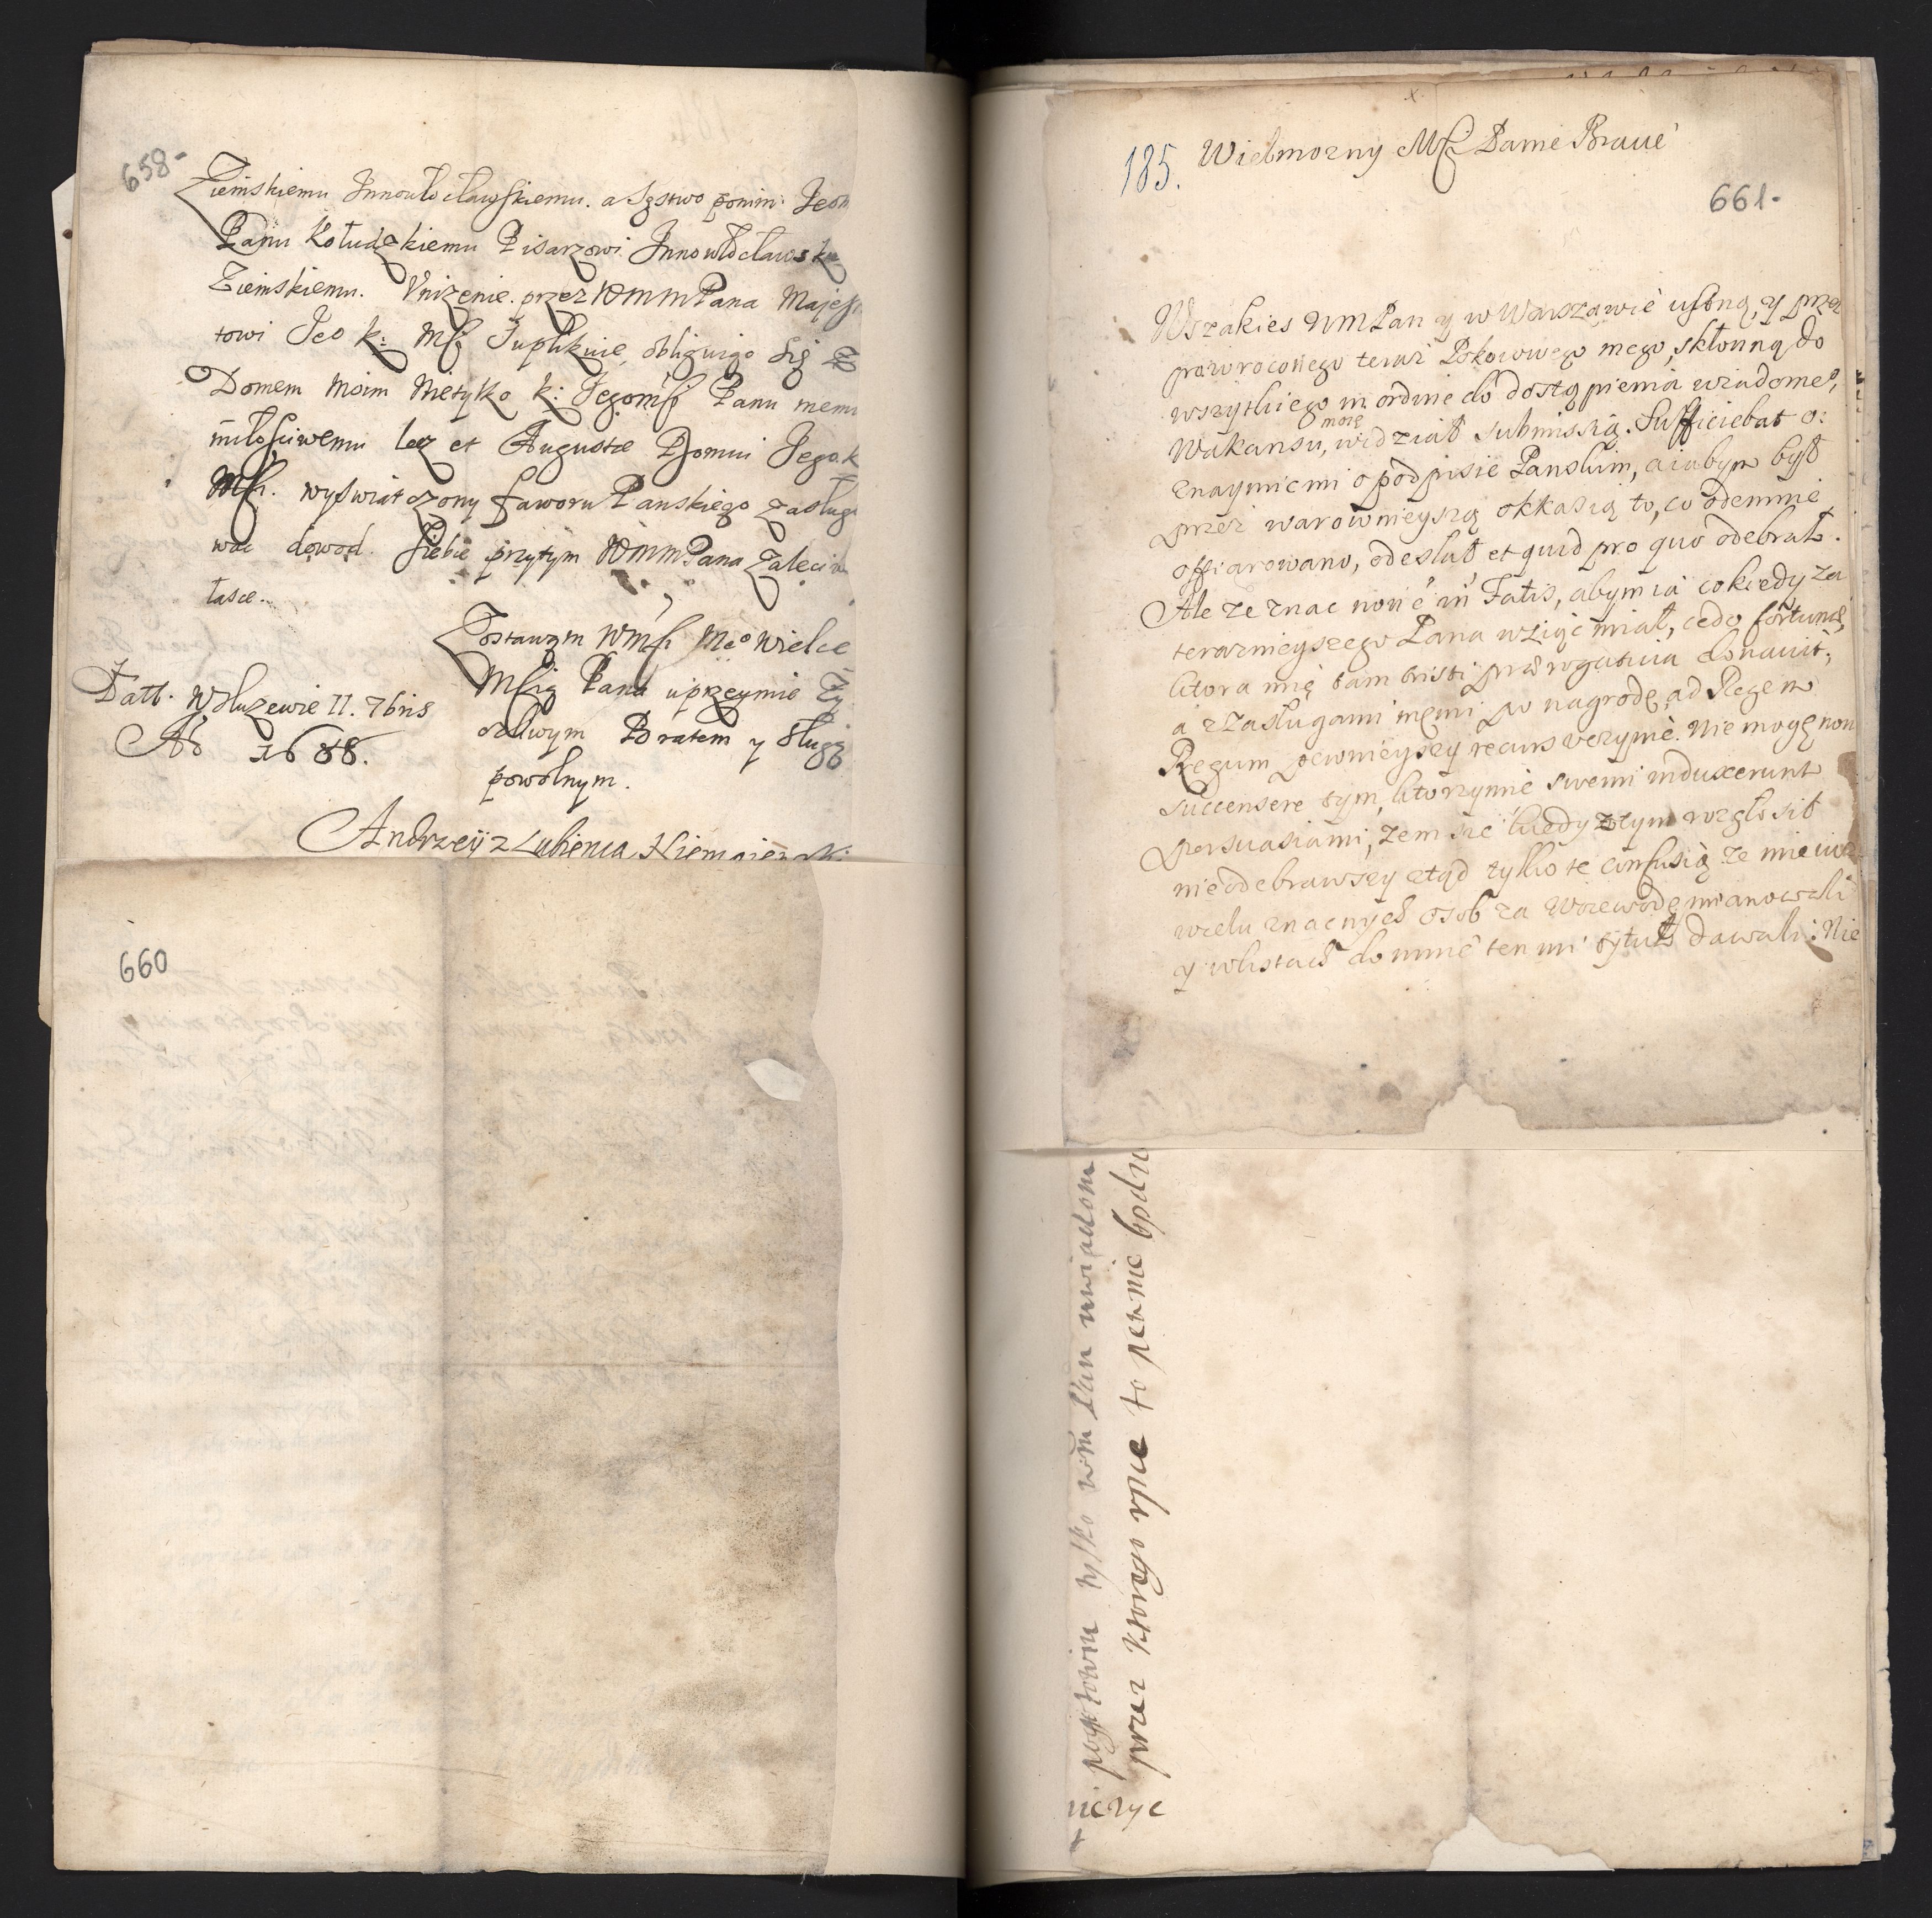 658-
Ziemskiemu Innowłocławskiemu. a Sęstwo ponim. Jeom
Panu Kołudzkiemu Pisarzowi Innowłocławsku
Ziemskiemu. Vniżenie. przez WMMPana Majes
towi Jeo K: Mści Supplikuie, obliguigc Się Z
Domem Moim Nietylko K: Jegomści Panu memu
miłościwemu lecz et Augustæ Domui Jego. K
Mści. wyświatczony faworu Panskiego zasługo
wac dowod. Siebie przytym WMMPana zaleciw
łasce.
Zostawam Wmści Meo Wielce
Mścią Pana uprzeymie Zy
czliwym Bratem y sługą
powolnym.
Datt. w Służewie 11. 7bris
Ao 1688.
Andrzeÿ z Lubienia Niemoiewski
660
185. Wielmozny Mści Panie Bracie
661-
Wszakies WMPan y w Warszawie ustną, y przez
powroconego teraz Pokoiowego mego, skłonną do
wszytkiego in ordine do dostąpienia wiadomeo,
Wakansu, moię widział submissią. Sufficiebat o:
znaymic mi o podpisie Panskim, a iabym był
przez warownieyszą okkasią to, co odemnie
offiarowano, odesłał et quid pro quo odebrał.
Ale ze znac non é in Fatis, abym ia cokiedy za
teraznieyszego Pana wziąć miał, cedo fortunæ,
ktora mię tam tristi prærogativa donavit,
a z zasługami memi po nagrodę, ad Regem
Regum pewnieyszy recurs vezynie. Nie mogę non
succensere tym, ktorzy mie swemi induxerunt
persuasiami, zem sie kiedy z tym ozgłosił
nie odebrawszy ztąd tylko te confusią ze mie iuz
wielu znacnych osob za Woiewodę mianowali
y w listach do mnie ten mi tytuł dawali: Nie
pogotowiu tylko wm Pan uwiadom
przez ktorego ręce to pewnie będzie
uczyc